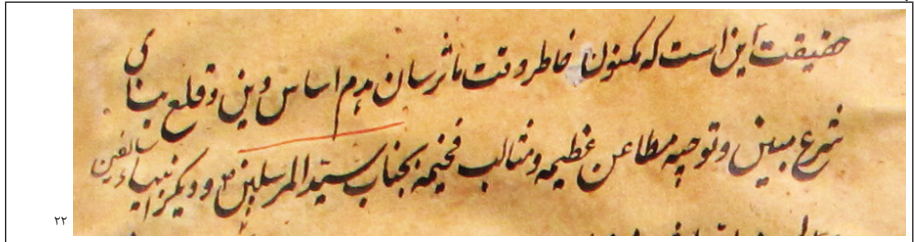 حقیقت این است که مکنون خاطر وقت مآثر سان هدم اساس دین و قلع بنای
شرع مبین و توجیه مطاعن عظیمه و مثالب فخیمه بجناب سید المرسلین و دیگر انبیاء سالفین
۲۲